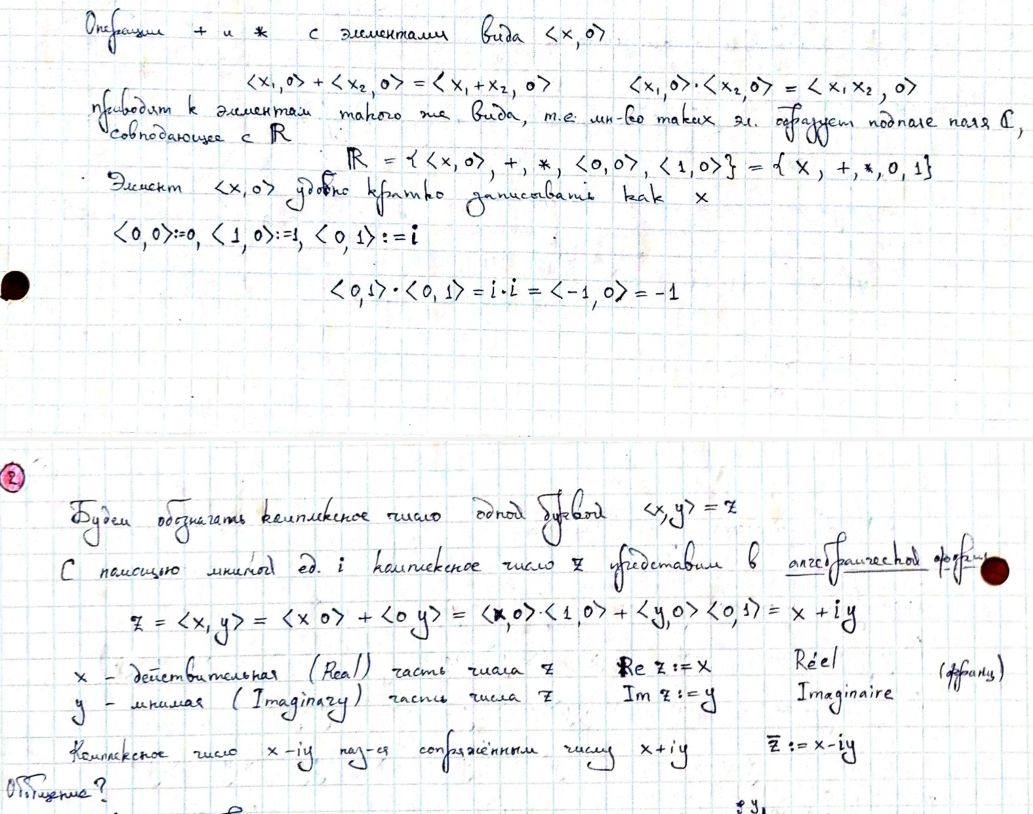 Операции + и * с элементами вида <x, 0>
<x₁, 0> + <x₂, 0> = <x₁+x₂, 0> <x₁, 0>·<x₂, 0> = <x₁x₂, 0>
приводят к элементам такого же вида, т.е. мн-во таких эл. образует подполе поля ℂ,
совпадающее с ℝ
ℝ = {<x, 0>, +, *, <0, 0>, <1, 0>} = {x, +, *, 0, 1}
Элемент <x, 0> удобно кратко записывать как x
<0, 0>:=0, <1, 0>:=1, <0, 1>:= i
<0, 1>·<0, 1> = i·i = <-1, 0> = -1
2
Будем обозначать комплексное число одной буквой <x, y> = z
С помощью мнимой ед. i комплексное число z представим в алгебраической форме
z = <x, y> = <x 0> + <0 y> = <x, 0>·<1, 0> + <y, 0> <0, 1> = x + iy
x - действительная (Real) часть числа z Re z := x Réel (франц)
y - мнимая (Imaginary) часть числа z Im z := y Imaginaire
Комплексное число x-iy наз-ся сопряжённым числу x+iy z̄ := x-iy